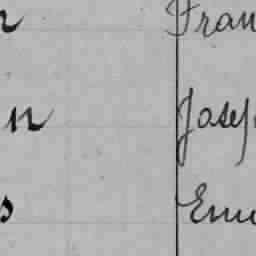 r Fran
n Josep
s Em